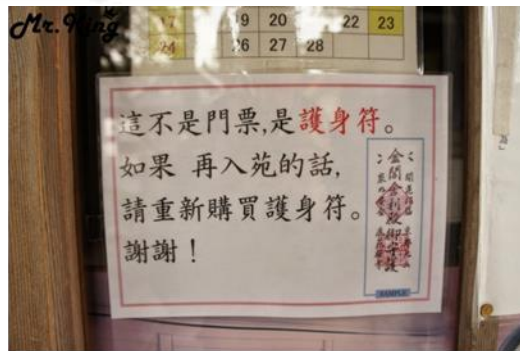 Mr. King
17 19 20 22 23
24 26 27 28
這不是門票,是護身符。
如果 再入苑的話,
請重新購買護身符。
謝謝！
金閣舍利殿御守護
SAMPLE